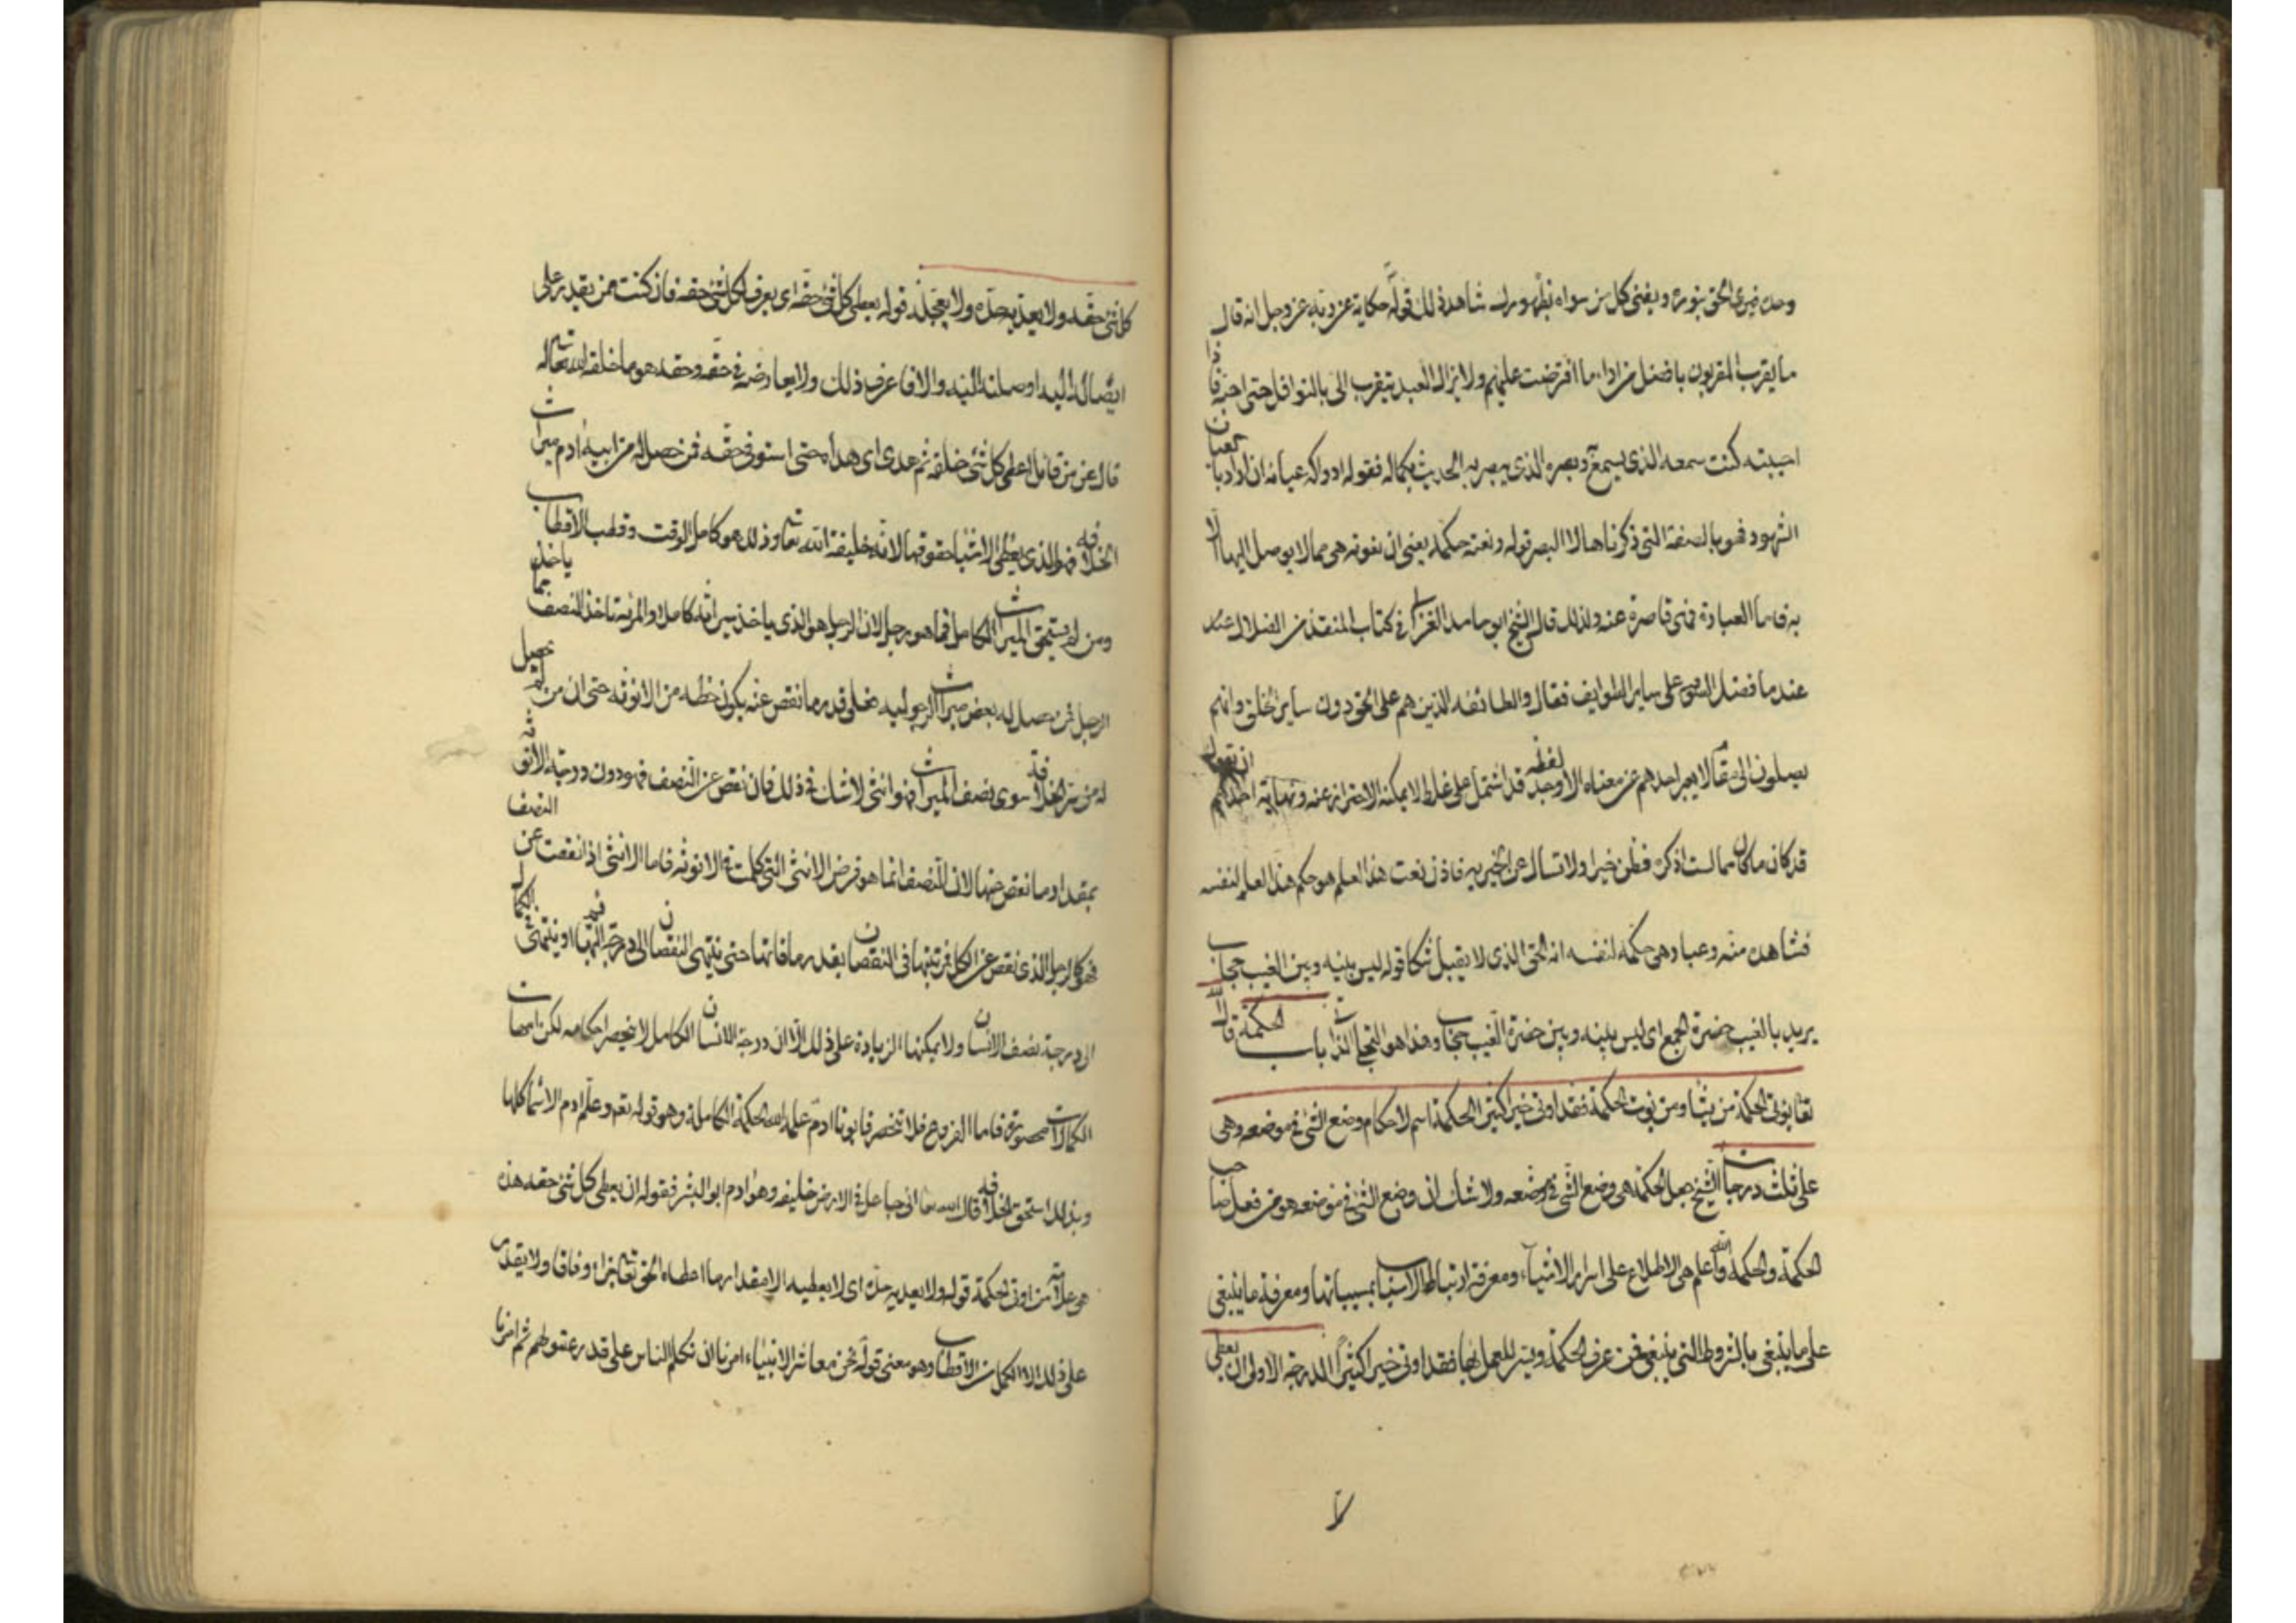 وحده فيرى الحق بنوره ويفنى كل من سواه بظهوره شاهد ذلك قوله حكاية عن ربه عز وجل انه قال
ما يقرب المقربون بافضل من اداء ما افترضت عليهم ولا يزال العبد يتقرب الى بالنوافل حتى احبه فاذا
احببته كنت سمعه الذي يسمع وبصره الذي يبصر به الحديث بكماله فقوله ادراكه عيانه ان اراد بالعيان
الشهود فهو بالصفة التي ذكرناها لا البصر قوله ونعته حكمه يعني ان نعوته هي مما لا يوصل اليها الا
به فاما العبارة فهي قاصرة عنه ولذلك قال الشيخ ابو حامد الغزالى في كتاب المنقذ من الضلال عند
عندما فضل الصوفية على ساير الطوايف فقال والطائفه الذين هم على الحق دون ساير الخلق وانهم
يصلون الى مقام لا يعبر احدهم عن معناه الا وجد لفظه قد اشتمل على غلط لا يمكنه الاحتراز عنه ونهاية احدهم ان يقول
قد كان ما كان مما لست اذكره فظن خيرا ولا تسأل عن الخبر به فاذن نعت هذا العلم هو حكم هذا العلم لنفسه
فشاهده منه وعبا وهي حكمه لنفسه انه الحق الذي لا يقبل شكا قوله ليس بينه وبين الغيب حجاب
يريد بالغيب حضرة الجمع اى ليس بينه وبين حضرة الغيب حجاب وهذا هو التجلى الذاتي باب الحكمة قال الله
تعالى يؤتى الحكمة من يشا ومن يوت الحكمة فقد اوتى خيرا كثيرا الحكمة اسم لاحكام وضع الشئ في موضعه وهي
على ثلث درجات الشيخ جعل الحكمة هي وضع الشئ في موضعه ولا شك ان وضع الشئ في موضعه هو من فعل صاحب
الحكمة والحكمة والله اعلم هي الاطلاع على اسرار الاشياء ومعرفة ارتباط الاسباب بمسبباتها ومعرفة ما ينبغي
على ما ينبغي بالشروط التي ينبغي فمن عرف الحكمة ويسر للعمل بها فقد اوتى خيرا كثيرا الدرجة الاولى ان يعطى
كل شئ حقه ولا يعديه حده ولا يعجله قوله يعطى كل شئ حقه اى يعرف لكل شئ حقه فان كنت ممن يقدر على
ايصاله اليه اوصلته اليه والا فاعرف ذلك ولا يعارضه في حقه وحقه هو ما خلقه الله تعالى له
قال عز من قائل اعطى كل شئ خلقه ثم هدى اى هداه حتى استوفى حقه فمن حصل له من ابيه ادم ميراث
الخلافه فهو الذي يعطى الاشيا حقوقها لانه خليفة الله تعالى وذلك هو كامل الوقت وقطب الاقطاب
ومن لم يستحق الميراث الكامل فما هو برجل لان الرجل هو الذي ياخذ ميراثه كاملا والمرئة تاخذ النصف مما ياخذه
الرجل فمن حصل له بعض ميراث الرجوليه فعلى قدر ما نقص عنه يكون حظه من الانوثه حتى ان من لم يحصل
له من سر الخلافة سوى نصف الميراث فهو انثى لا شك في ذلك فان نقص عن النصف فهو دون درجة الانوثه
بمقدار ما نقص عنها لان النصف انما هو فرض الانثى التي كملت في الانوثه فاما الانثى اذا نقصت عن النصف
فهي كالرجل الذي نقص عن الكمال فرتبتها في النقصان بقدر ما فاتها حتى ينتهى النقصان الى درجة البهايم او ينتهى الكمال
الى درجة نصف الانسان ولا يمكنها الزيادة على ذلك الا ان درجة الانسان الكامل لا ينحصر احكامه لكن امهات
الكمالات محصورة فاما الفروع فلا تنحصر فابونا ادم علمه الله الحكمة الكاملة وهو قوله تعالى وعلم ادم الاسماء كلها
وبذلك استحق الخلافه قال الله تعالى اني جاعل في الارض خليفه وهو ادم ابو البشر فقوله ان يعطى كل شئ حقه هذه
هي علامة من اوتى الحكمة قوله ولا يعديه حده اى لا يعطيه الا مقدار ما اعطاه الحق تعالى جزاء وفاقا ولا يقدر
على ذلك الا الكمل من الاقطاب وهو معنى قوله نحن معاشر الانبياء امرنا ان نكلم الناس على قدر عقولهم ثم امرنا